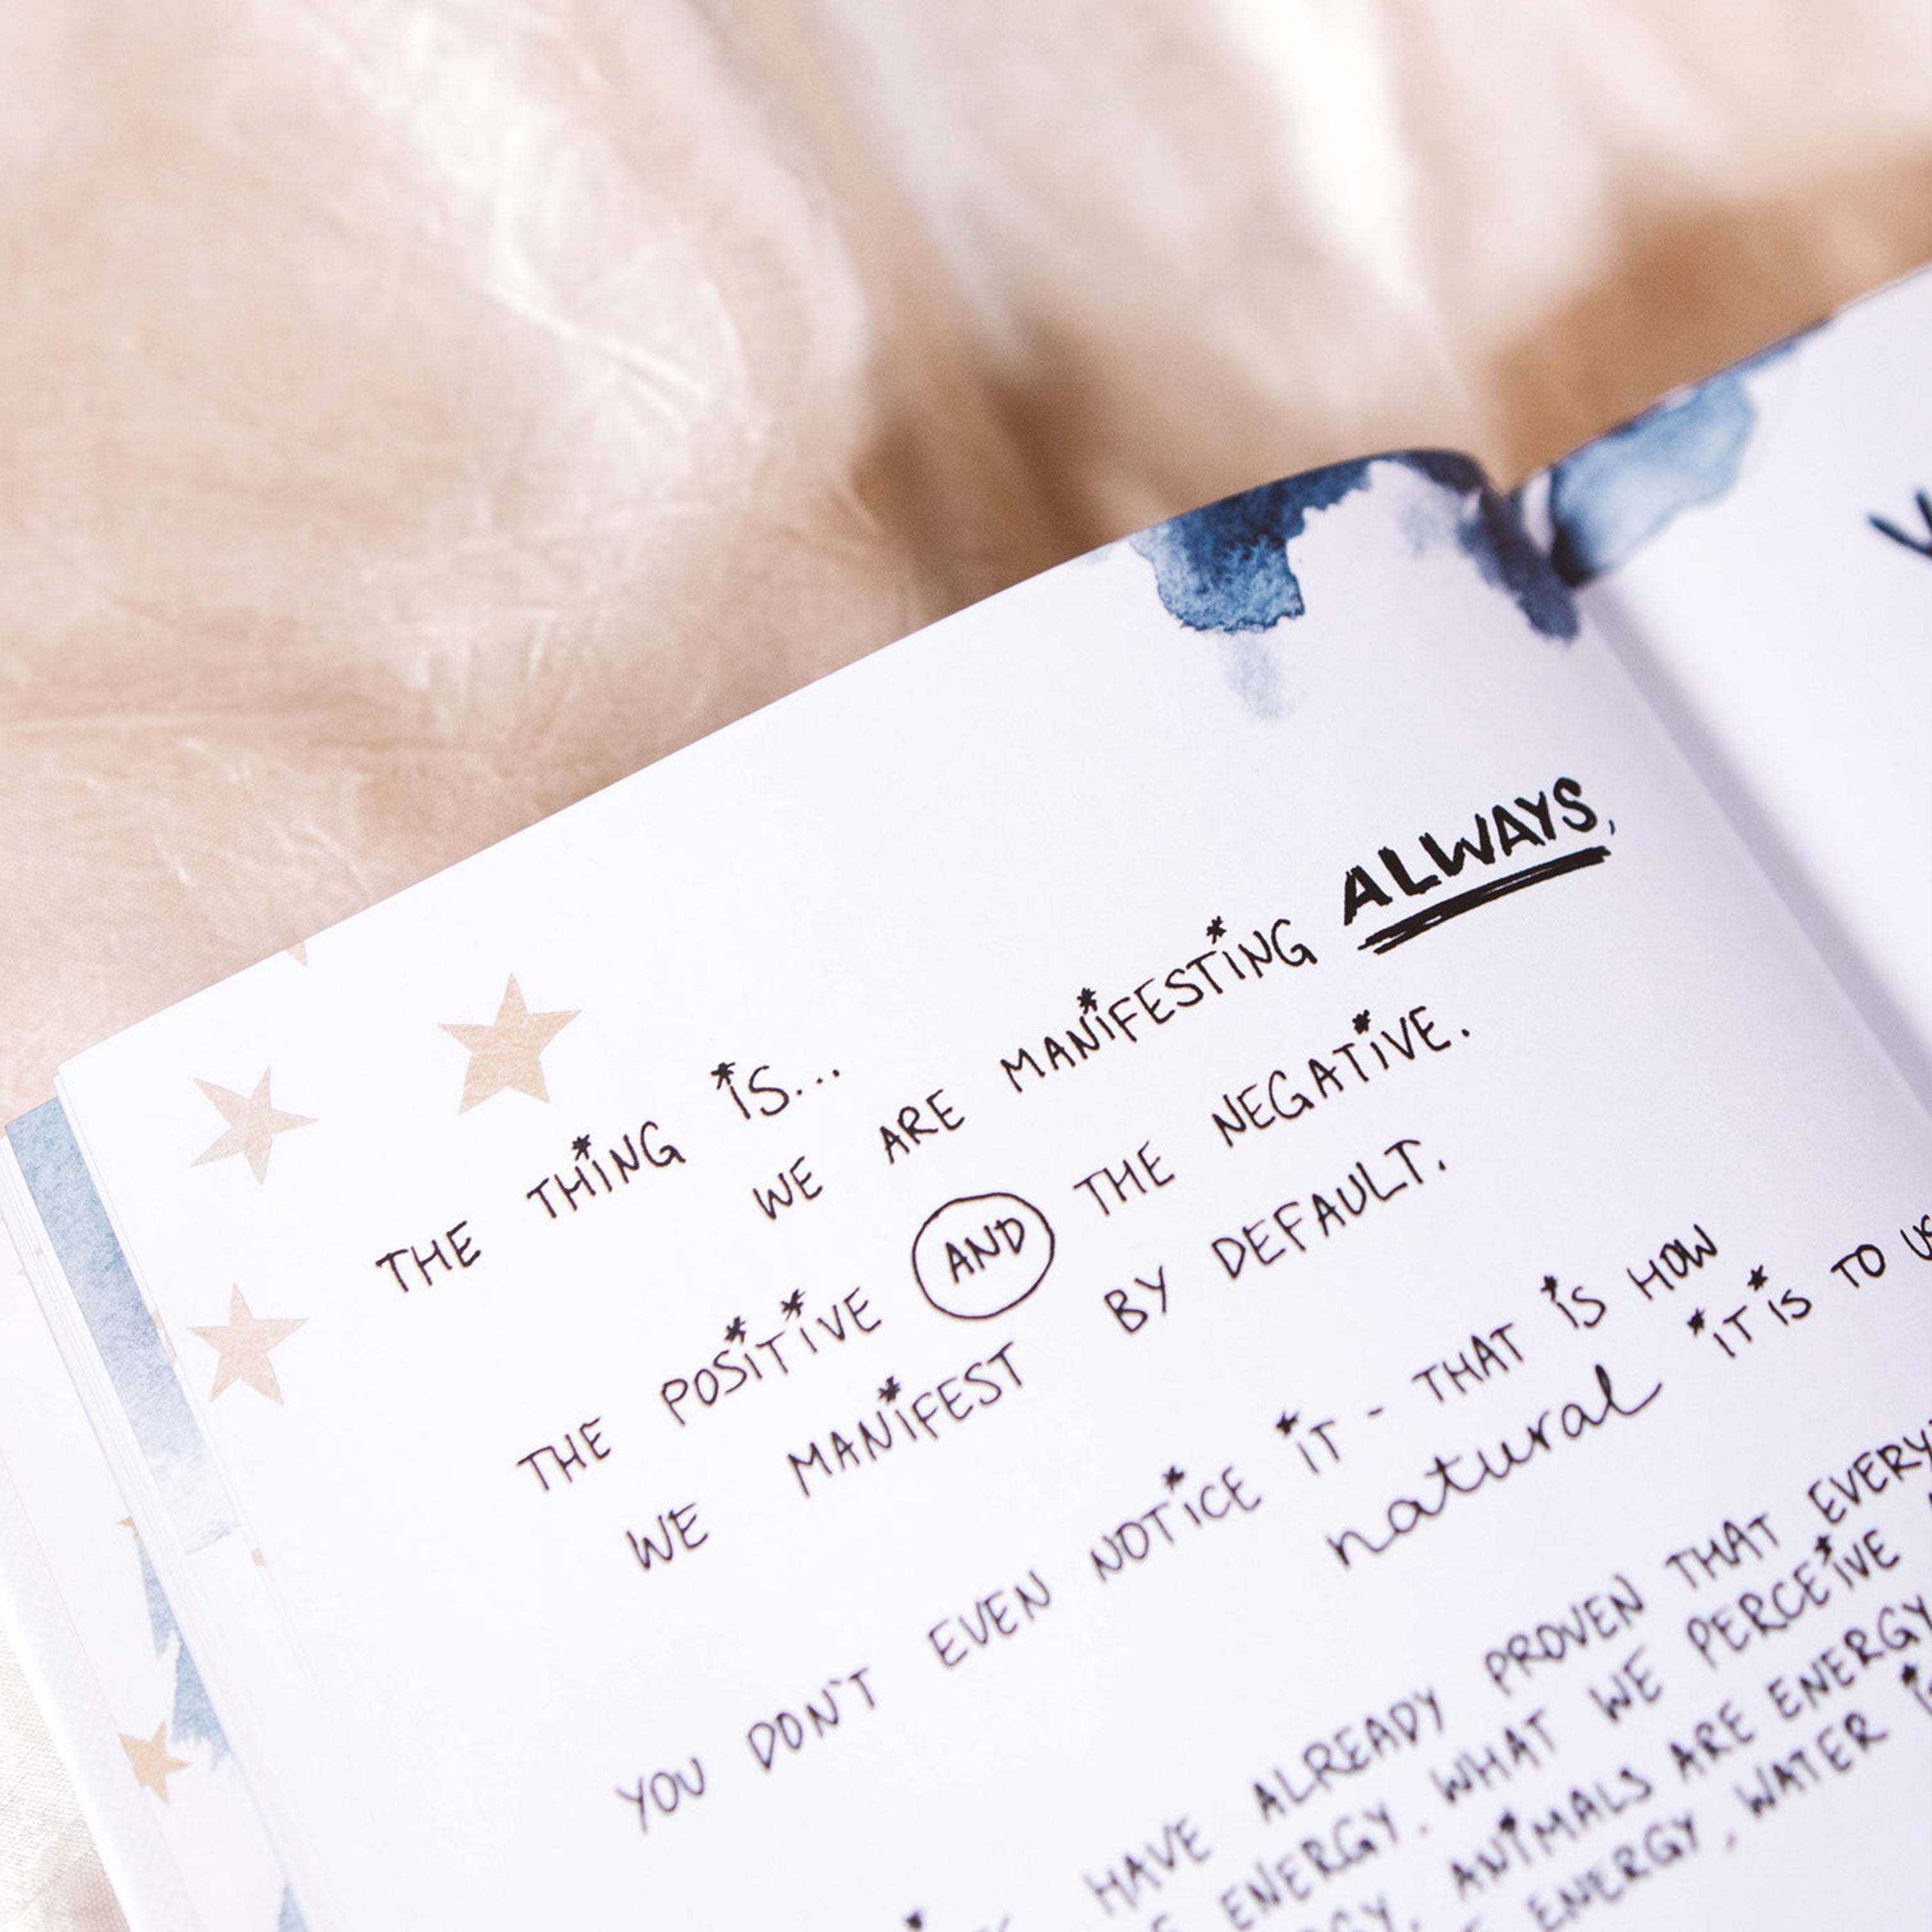 THE THING iS...
WE ARE MANiFESTiNG ALWAYS,
THE POSiTiVE AND THE NEGATiVE.
WE MANiFEST BY DEFAULT.
YOU DON'T EVEN NOTiCE iT - THAT iS HOW
natural iT iS TO US
HAVE ALREADY PROVEN THAT
ENERGY. WHAT WE PERCEiVE
ANiMALS ARE ENERGY
ENERGY, WATER